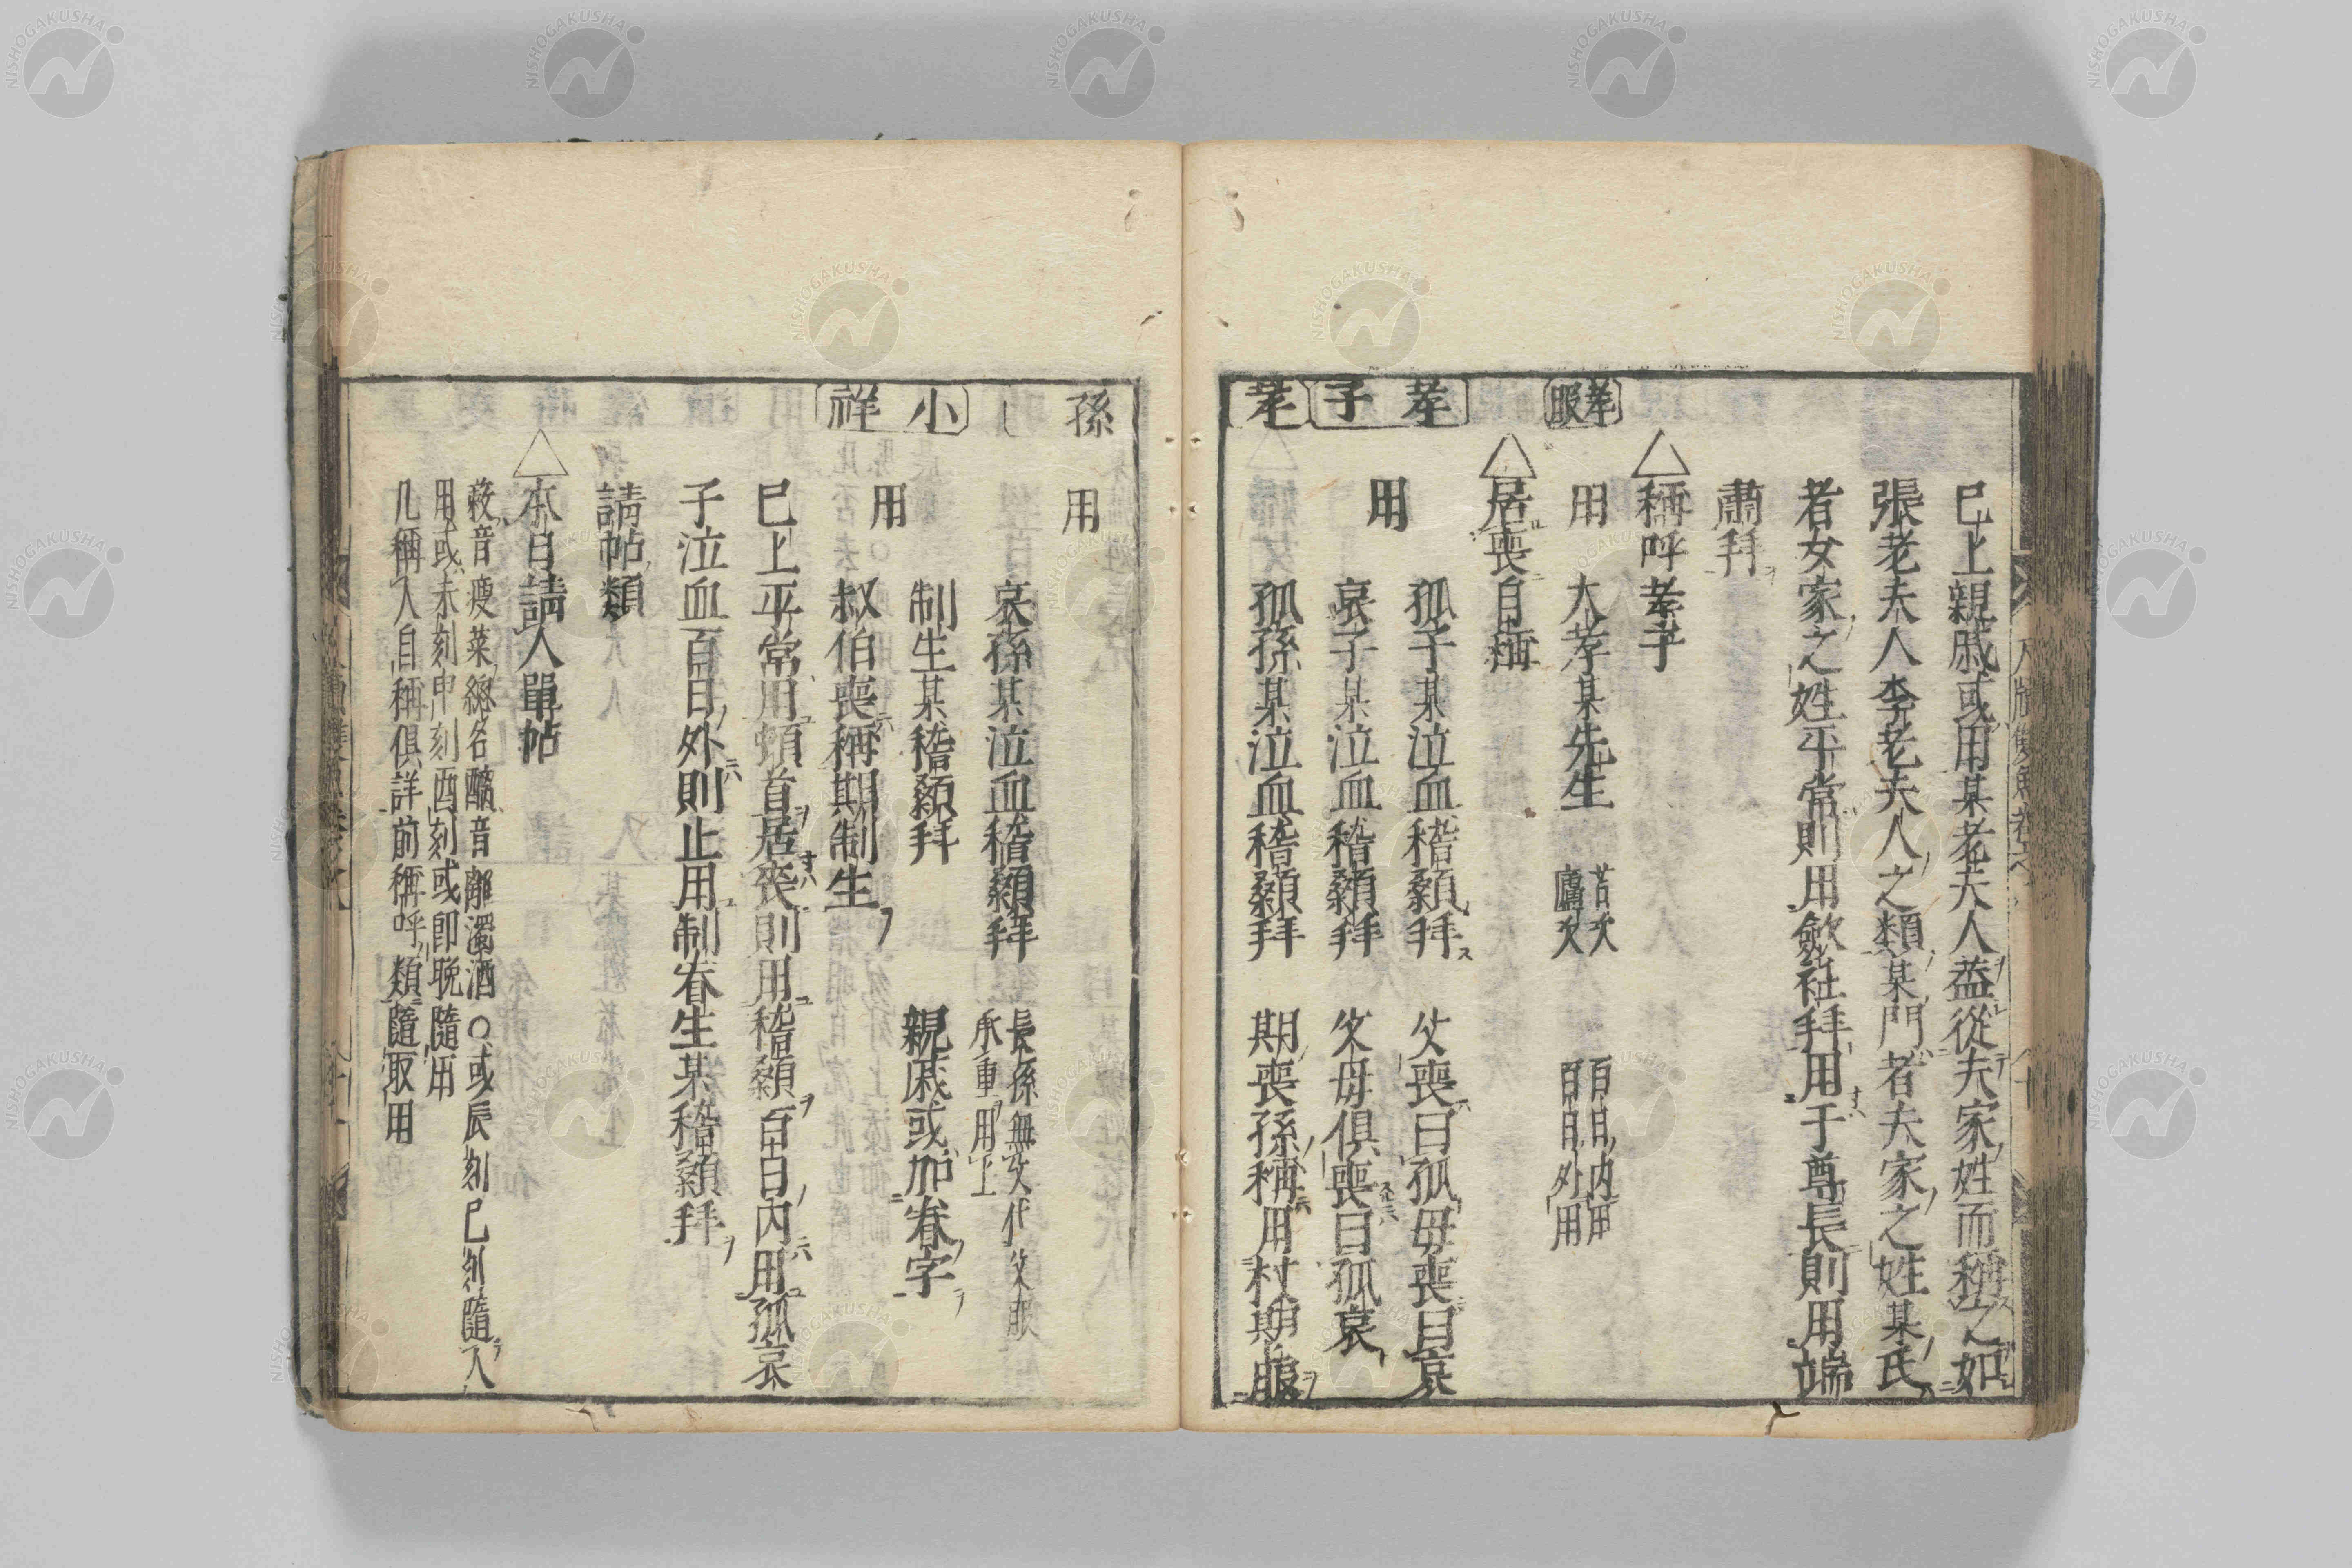 巳上親戚或用某老夫人葢從夫家姓而稱之如
張老夫人李老夫人之類某門者夫家之姓某氏
者女家之姓平常則用斂衽拜用于尊長則用端
肅拜
△稱呼孝子
孝服
用 大孝某先生 苫次 百日內用
廬次 百日外用
△居喪自稱
孝子
孤子某泣血稽顙拜 父喪曰孤母喪曰哀
用
哀子某泣血稽顙拜 父母俱喪曰孤哀
孝
孤孫某泣血稽顙拜 期喪孫稱用杖期服
孫
用
哀孫某泣血稽顙拜 長孫無父代父服
承重用上
小祥
制生某稽顙拜 親戚或加眷字
用
叔伯喪稱期制生
巳上平常用頓首居喪則用稽顙百日內用孤哀
子泣血百日外則止用制眷生某稽顙拜
請帖類
△本日請人單帖
蔌音瘦菜總名醨音離濁酒○或辰刻巳刻隨人
用或未刻申刻酉刻或即晚隨用
凡稱人自稱俱詳前稱呼類隨取用
NISHOGAKUSHA